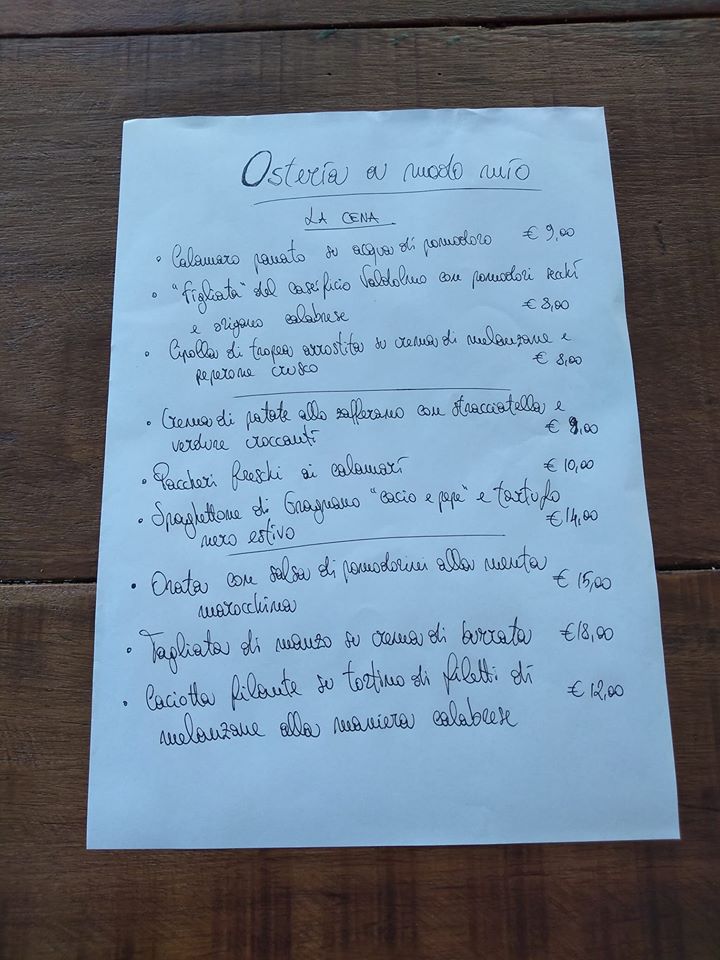 Osteria a modo mio
LA CENA
• Calamaro panato su acqua di pomodoro € 9,00
• "Figliata" del caseificio Valdolmo con pomodori secchi
e origano calabrese € 8,00
• Cipolla di tropea arrostita su crema di melanzane e
peperone crusco € 8,00
• Crema di patate allo zafferano con stracciatella e
verdure croccanti € 9,00
• Paccheri freschi ai calamari € 10,00
• Spaghettone di Gragnano "cacio e pepe" e tartufo
nero estivo € 14,00
• Orata con salsa di pomodorini alla menta
marocchina € 15,00
• Tagliata di manzo su crema di burrata € 18,00
• Caciotta filante su tortino di filetti di
melanzane alla maniera calabrese € 12,00